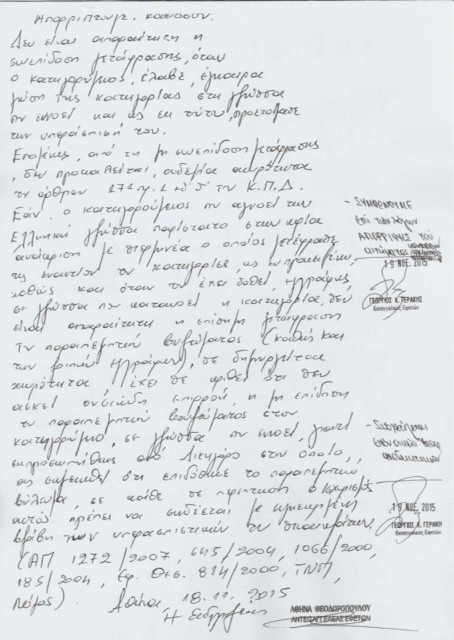 Απορριπτομ. καθόσον:
Δεν είναι απαραίτητη η
συνεπίδοση μετάφρασης, όταν
ο κατηγορούμενος, έλαβε, έγκαιρα
γνώση της κατηγορίας στη γλώσσα
που εννοεί και ως εκ τούτου, προετοίμασε
την υπεράσπισή του.
Επομένως, από τη μη συνεπίδοση μετάφρασης
, δεν προκαλείται, ουδεμία ακυρότητα
το άρθρου 171 παρ. 1 Κ.Π.Δ.
Εάν, ο κατηγορούμενος που αγνοεί την
Ελληνική γλώσσα παρίστατο στην κυρία
ανάκριση με διερμηνέα ο οποίος μετέφρασε
τις εναντίον του κατηγορίες
καθώς και όταν του έχει δοθεί, έγγραφο
σε γλώσσα που κατανοεί η κατηγορία, δεν
είναι απαραίτητη η επίσημη μετάφραση
του παραπεμπτικού βουλεύματος (καθώς και
των λοιπών εγγράφων), δε δημιουργείται
ακυρότητα έχει δε κριθεί ότι δεν
ασκεί ουσιώδη επιρροή, η μη επίδοση
του παραπεμπτικού βουλεύματος στον
κατηγορούμενο, σε γλώσσα που εννοεί, γιατί
εκπροσωπήθηκε από δικηγόρο στον οποίο,
ας σημειωθεί ότι επιδόθηκε το παραπεμπτικό
βούλευμα, σε κάθε δε περίπτωση ο ισχυρισμός
αυτός πρέπει να συνδέεται με
βλάβη των υπερασπιστικών του δικαιωμάτων.
(ΑΠ 1272/2007, 645/2004, 1066/2000,
185/2004, Εφ. Θεσ. 814/2000, ΤΝΠ,
Νόμος) Αθήνα, 18.11.2015
Η Εισαγγελέας
ΑΘΗΝΑ ΘΕΟΔΩΡΟΠΟΥΛΟΥ
ΑΝΤΕΙΣΑΓΓΕΛΕΑΣ ΕΦΕΤΩΝ
- ΣΥΜΦΩΝΟΥΜΕ
επί των λόγων
ΑΠΟΡΡΙΨΗΣ του
αιτήματος
19 ΝΟΕ. 2015
ΓΕΩΡΓΙΟΣ Ν. ΓΕΡΑΚΗΣ
Εισαγγελέας Εφετών
19 ΝΟΕ. 2015
ΓΕΩΡΓΙΟΣ Ν. ΓΕΡΑΚΗΣ
Εισαγγελέας Εφετών